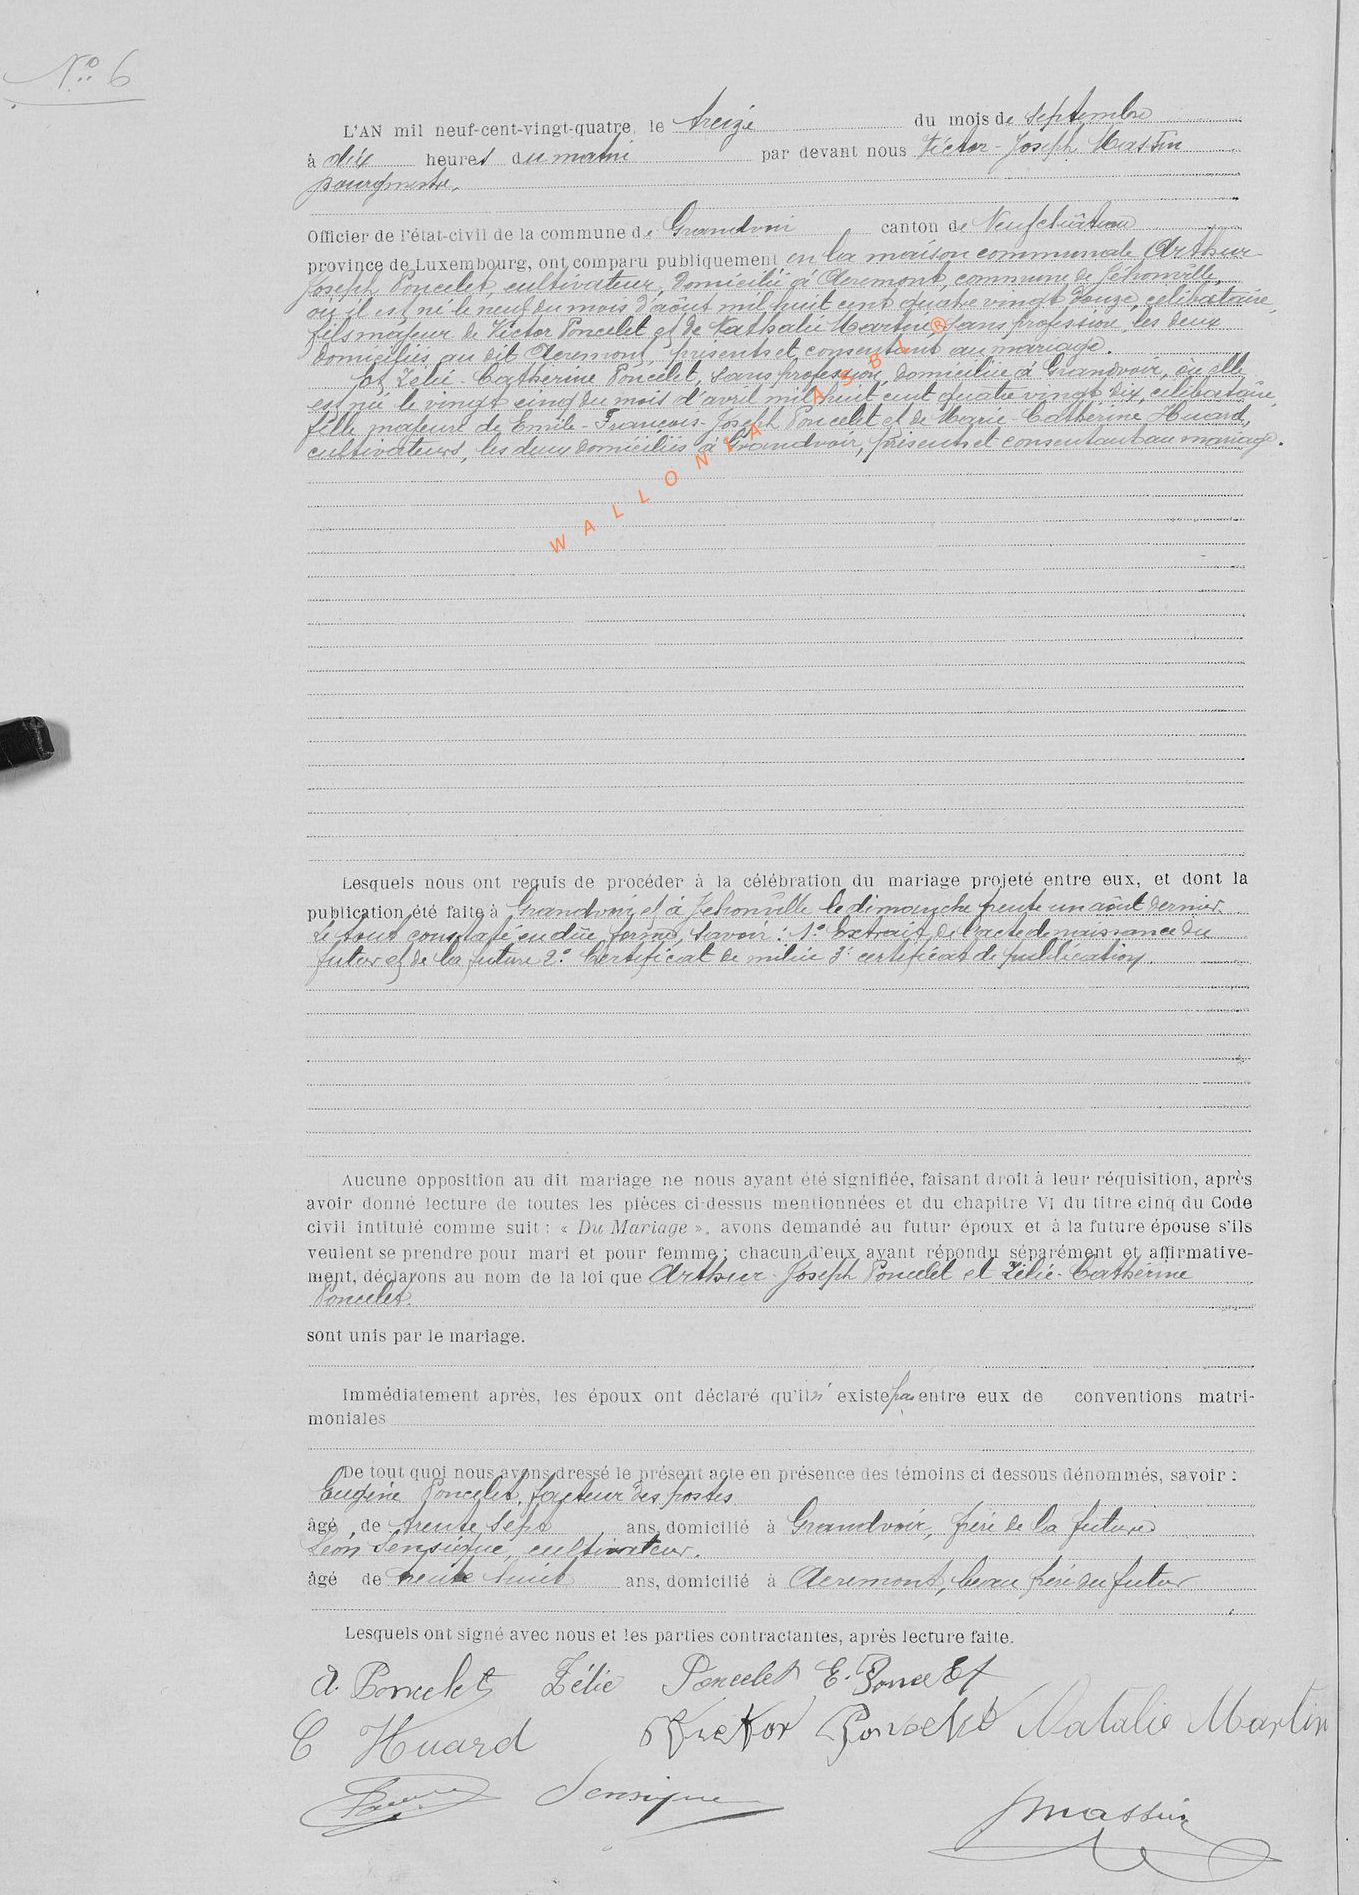 N° 6
L'AN mil neuf-cent-vingt-quatre, le treize du mois de septembre
à dix heures du matin par devant nous Victor-Joseph Massin
bourgmestre,
Officier de l'état-civil de la commune de Grandvoir canton de Neufchâteau
province de Luxembourg, ont comparu publiquement en la maison communale Arthur
Joseph Poncelet, cultivateur, domicilié à Acremont, commune de Jehonville,
où il est né le neuf du mois d'août mil huit cent quatre vingt douze, célibataire,
fils majeur de Victor Poncelet et de Nathalie Martin, sans profession, les deux
domiciliés au dit Acremont, présents et consentant au mariage.
Et Zélie-Catherine Poncelet, sans profession, domiciliée à Grandvoir, où elle
est née le vingt cinq du mois d'avril mil huit cent quatre vingt dix, célibataire,
fille majeure de Emile-François-Joseph Poncelet et de Marie-Catherine Huard,
cultivateurs, les deux domiciliés à Grandvoir, présents et consentant au mariage.
WALLONIA ASBL ®
Lesquels nous ont requis de procéder à la célébration du mariage projeté entre eux, et dont la
publication été faite à Grandvoir et à Jehonville le dimanche trente un août dernier
Le tout constaté en due forme, savoir: 1° Extrait de l'acte de naissance du
futur et de la future 2° Certificat de milice 3° certificat de publication.
Aucune opposition au dit mariage ne nous ayant été signifiée, faisant droit à leur réquisition, après
avoir donné lecture de toutes les pièces ci-dessus mentionnées et du chapitre VI du titre cinq du Code
civil intitulé comme suit : « Du Mariage », avons demandé au futur époux et à la future épouse s'ils
veulent se prendre pour mari et pour femme ; chacun d'eux ayant répondu séparément et affirmative-
ment, déclarons au nom de la loi que Arthur-Joseph Poncelet et Zélie-Catherine
Poncelet.
sont unis par le mariage.
Immédiatement après, les époux ont déclaré qu'il n'existe pas entre eux de conventions matri-
moniales
De tout quoi nous avons dressé le présent acte en présence des témoins ci dessous dénommés, savoir :
Eugène Poncelet, facteur des postes
âgé de trente sept ans, domicilié à Grandvoir, frère de la future
Léon Sensique, cultivateur.
âgé de trente huit ans, domicilié à Acremont, beau frère du futur
Lesquels ont signé avec nous et les parties contractantes, après lecture faite.
A. Poncelet Zélie Poncelet E. Poncelet
C Huard Victor Poncelet Natalie Martin
Sensique Massin